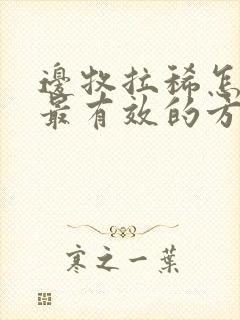 邊牧拉稀怎
最有效的方
寒之一葉